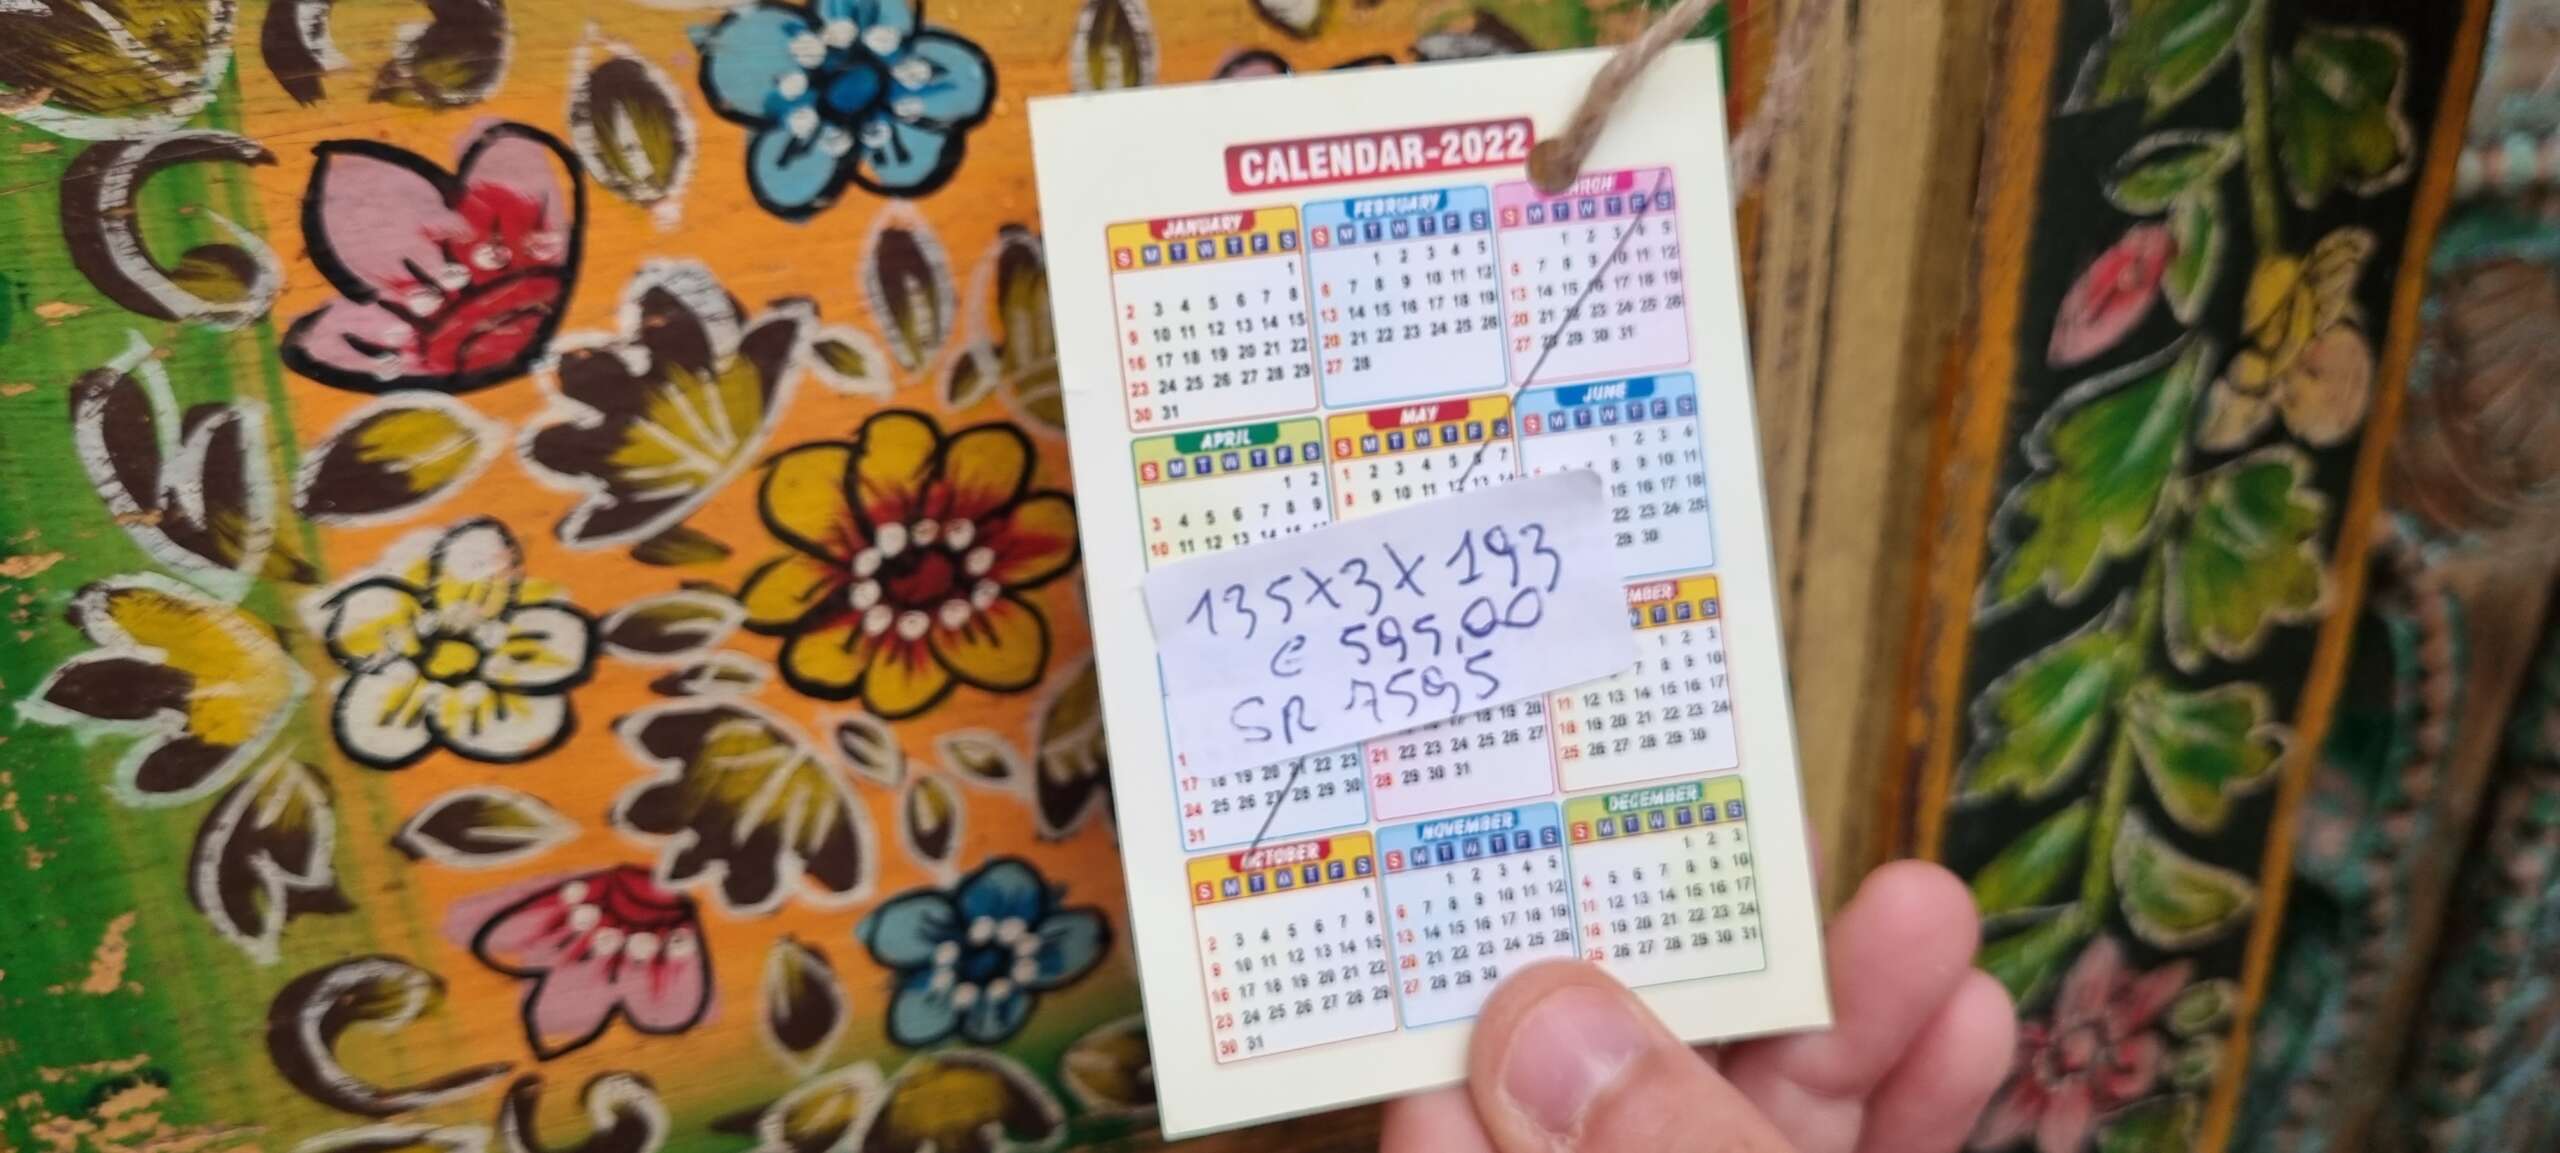 CALENDAR-2022
JANUARY
S M T W T F S
1
2 3 4 5 6 7 8
9 10 11 12 13 14 15
16 17 18 19 20 21 22
23 24 25 26 27 28 29
30 31
FEBRUARY
S M T W T F S
1 2 3 4 5
6 7 8 9 10 11 12
13 14 15 16 17 18 19
20 21 22 23 24 25 26
27 28
S M T W T F S
1 2 3 4 5
6 7 8 9 10 11 12
13 14 15 16 17 18 19
20 21 22 23 24 25 26
27 28 29 30 31
APRIL
S M T W T F S
1 2
3 4 5 6 7 8 9
10 11 12 13
MAY
S M T W T F S
1 2 3 4 5 6 7
8 9 10 11 12 13 14
JUNE
S M T W T F S
1 2 3 4
8 9 10 11
15 16 17 18
22 23 24 25
29 30
135x3x193
€ 595,00
SR 7595
17 18 19 20 21 22 23
24 25 26 27 28 29 30
31
18 19 20
21 22 23 24 25 26 27
28 29 30 31
T F S
1 2 3
7 8 9 10
11 12 13 14 15 16 17
18 19 20 21 22 23 24
25 26 27 28 29 30
OCTOBER
S M T W T F S
1
2 3 4 5 6 7 8
9 10 11 12 13 14 15
16 17 18 19 20 21 22
23 24 25 26 27 28 29
30 31
NOVEMBER
S M T W T F S
1 2 3 4 5
6 7 8 9 10 11 12
13 14 15 16 17 18 19
20 21 22 23 24 25 26
27 28 29 30
DECEMBER
S M T W T F S
1 2 3
4 5 6 7 8 9 10
11 12 13 14 15 16 17
18 19 20 21 22 23 24
25 26 27 28 29 30 31